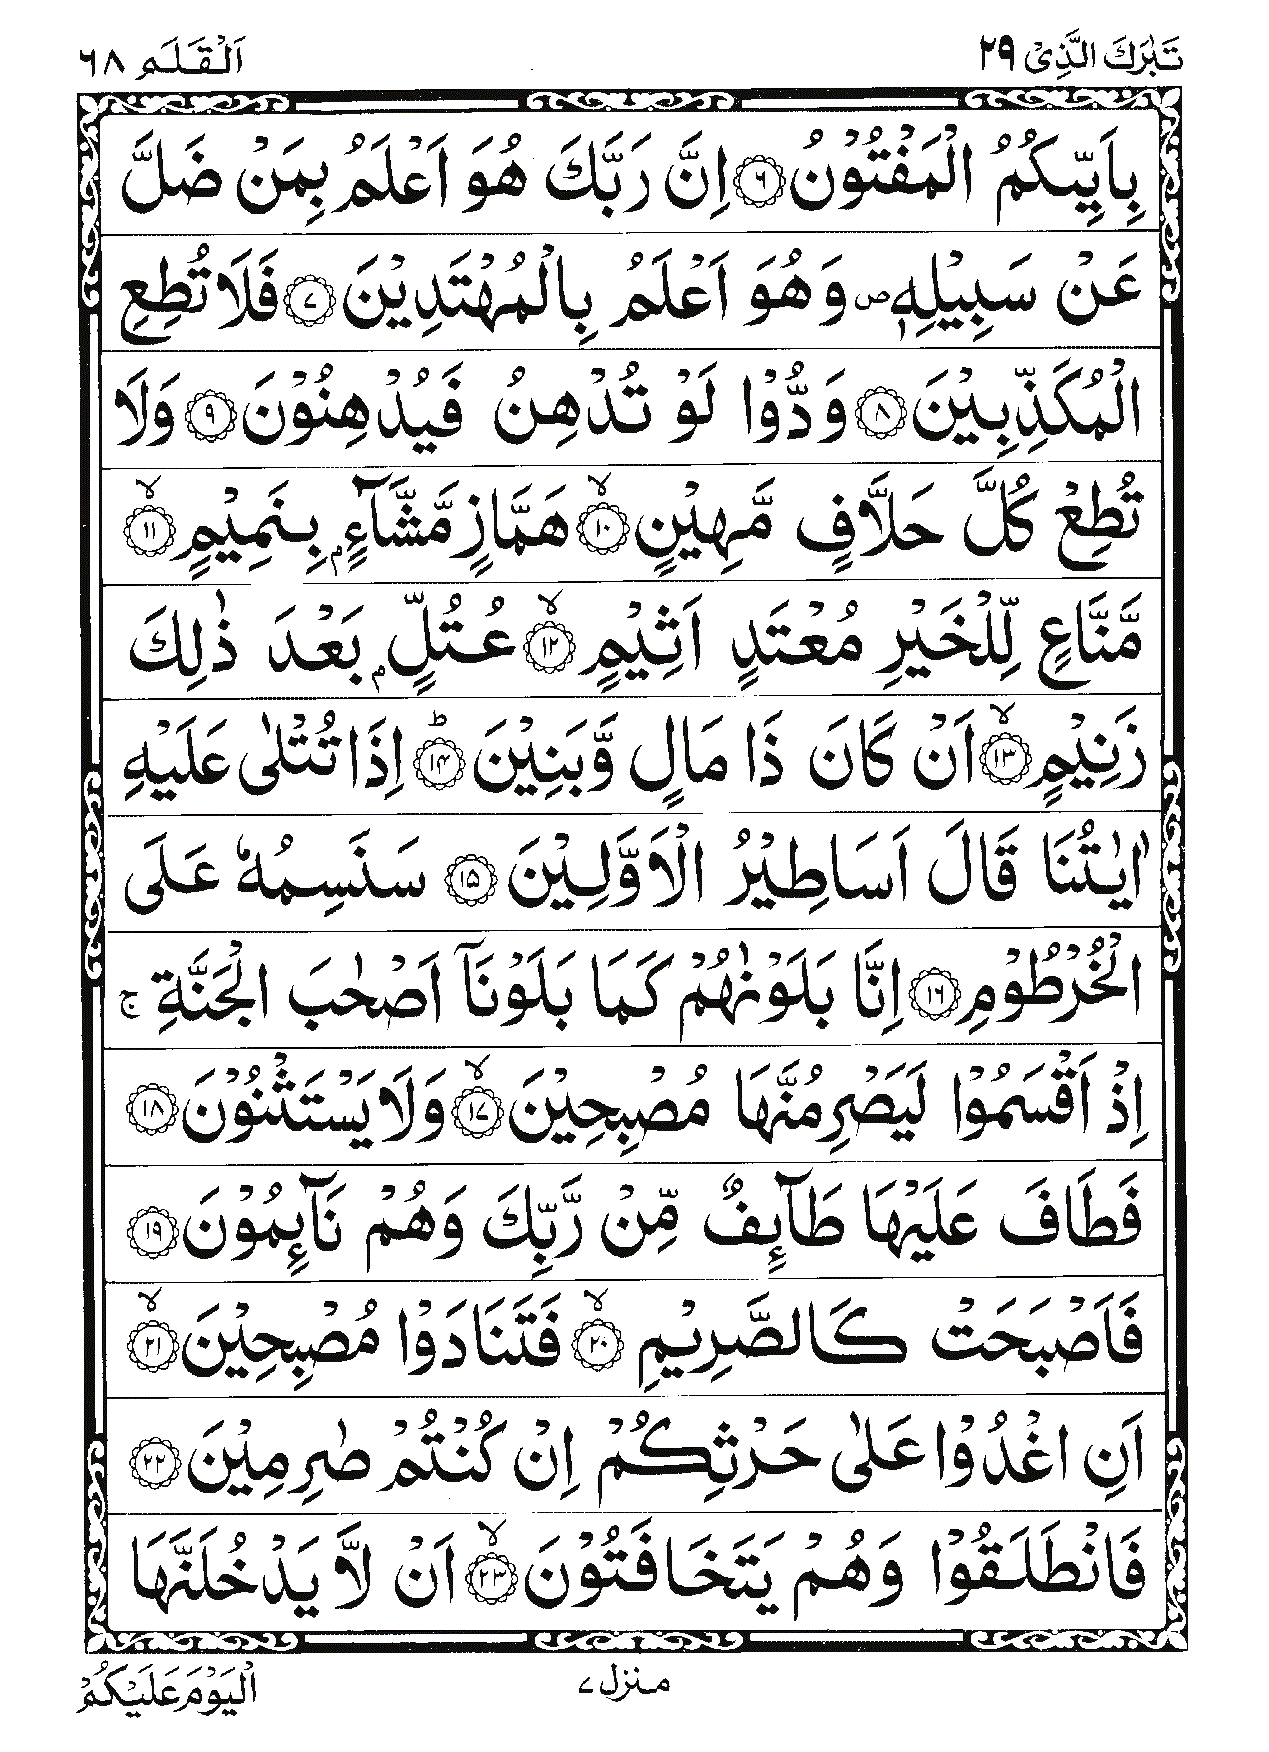 تَبٰرَكَ الَّذِیْ ٢٩
اَلْقَلَم ٦٨
بِاَىيِّكُمُ الْمَفْتُوْنُ ۝٦ اِنَّ رَبَّكَ هُوَ اَعْلَمُ بِمَنْ ضَلَّ
عَنْ سَبِيْلِهٖ ۪ وَهُوَ اَعْلَمُ بِالْمُهْتَدِيْنَ ۝٧ فَلَا تُطِعِ
الْمُكَذِّبِيْنَ ۝٨ وَدُّوْا لَوْ تُدْهِنُ فَيُدْهِنُوْنَ ۝٩ وَلَا
تُطِعْ كُلَّ حَلَّافٍ مَّهِيْنٍ ۙ‏۝١٠ هَمَّازٍ مَّشَّآءٍۢ بِنَمِيْمٍ ۙ‏۝١١
مَّنَّاعٍ لِّلْخَيْرِ مُعْتَدٍ اَثِيْمٍ ۙ‏۝١٢ عُتُلٍّۢ بَعْدَ ذٰلِكَ
زَنِيْمٍ ۙ‏۝١٣ اَنْ كَانَ ذَا مَالٍ وَّبَنِيْنَ ؕ‏۝١٤ اِذَا تُتْلٰى عَلَيْهِ
اٰيٰتُنَا قَالَ اَسَاطِيْرُ الْاَوَّلِيْنَ ۝١٥ سَنَسِمُهٗ عَلَى
الْخُرْطُوْمِ ۝١٦ اِنَّا بَلَوْنٰهُمْ كَمَا بَلَوْنَاۤ اَصْحٰبَ الْجَنَّةِ ۚ
اِذْ اَقْسَمُوْا لَيَصْرِمُنَّهَا مُصْبِحِيْنَ ۙ‏۝١٧ وَلَا يَسْتَثْنُوْنَ ۝١٨
فَطَافَ عَلَيْهَا طَآئِفٌ مِّنْ رَّبِّكَ وَهُمْ نَآئِمُوْنَ ۝١٩
فَاَصْبَحَتْ كَالصَّرِيْمِ ۙ‏۝٢٠ فَتَنَادَوْا مُصْبِحِيْنَ ۙ‏۝٢١
اَنِ اغْدُوْا عَلٰى حَرْثِكُمْ اِنْ كُنْتُمْ صٰرِمِيْنَ ۝٢٢
فَانْطَلَقُوْا وَهُمْ يَتَخَافَتُوْنَ ۙ‏۝٢٣ اَنْ لَّا يَدْخُلَنَّهَا
منزل ٧
الْيَوْمَ عَلَيْكُمْ